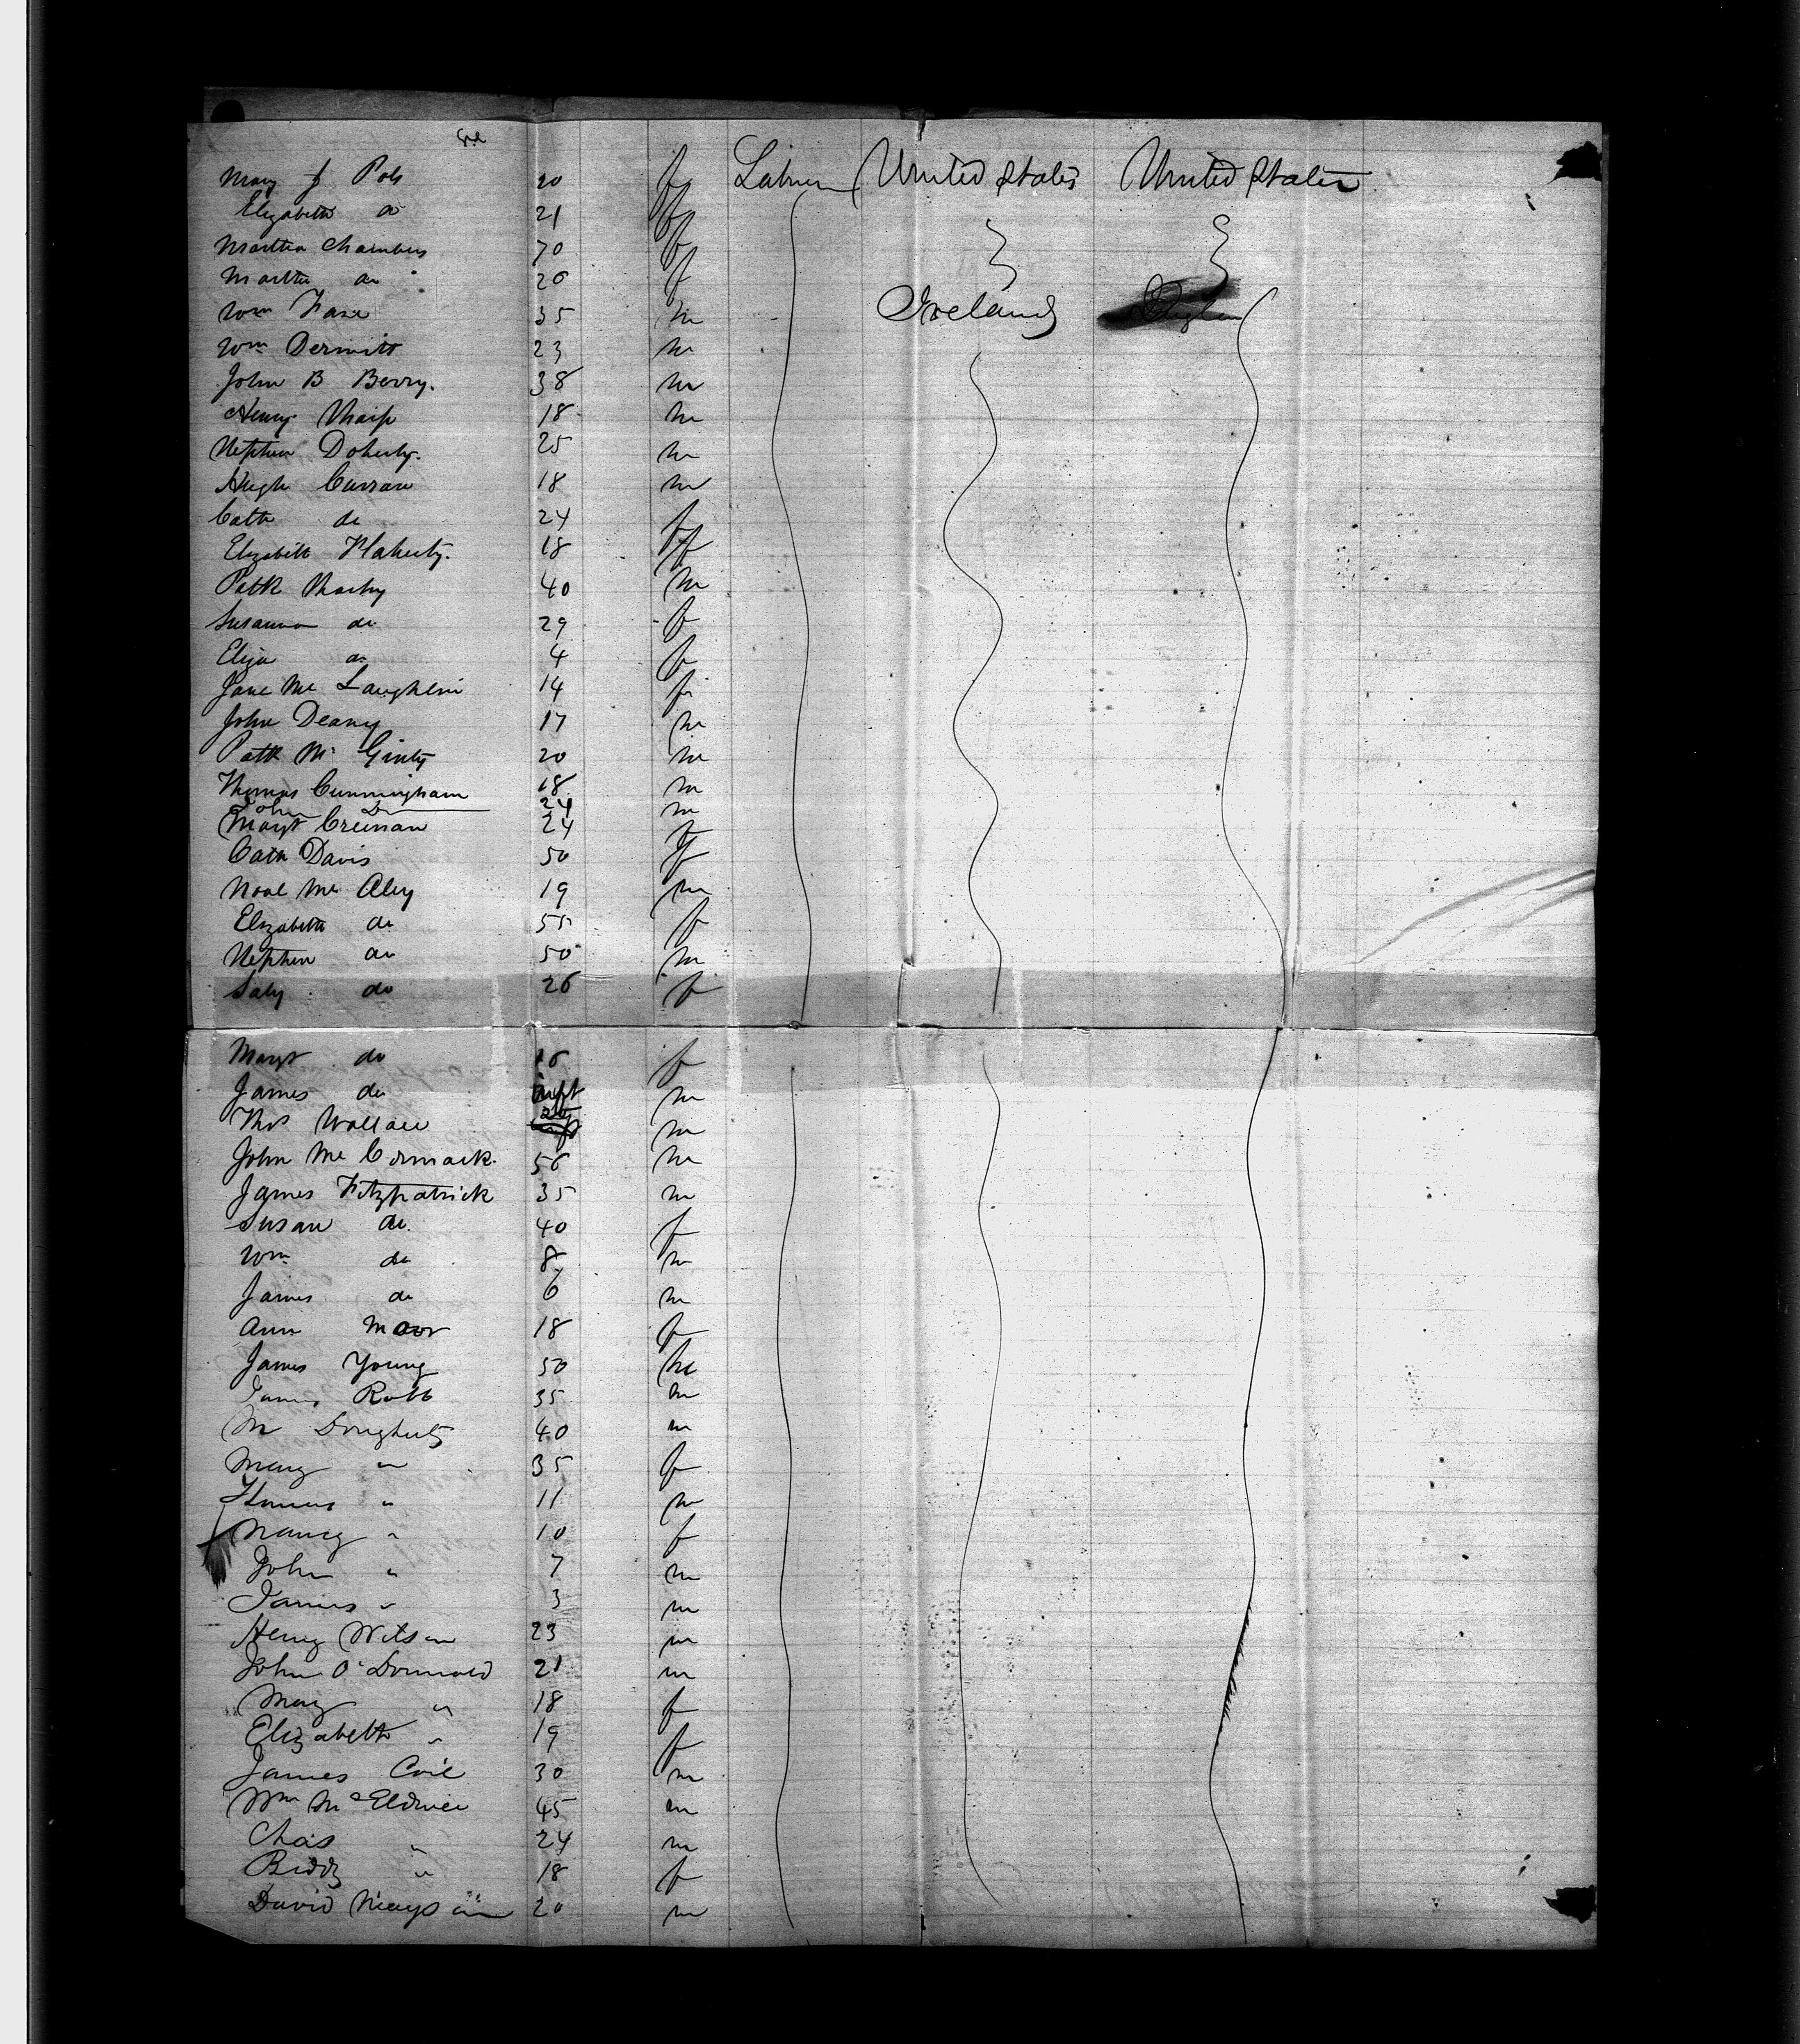 Mary J 20 f United States United States
Elizabeth do 21 f
Martha Chambers 70 f
Martha do 20 f
Wm 35 m Ireland
Wm Dermitt 23 m
John B Berry. 38 m
Henry 18 m
Stephen Doherty. 25 m
Hugh Curran 18 m
Cath do 24 f
Elizabeth Flaherty. 18 f
Patk 40 m
Susanna do 29 f
Eliza do 4 f
Jane Mc Laughlin 14 f
John Deany 17 m
Patk Mc Ginty 20 m
Thomas Cunningham 18 m
John Do 24 m
Margt 24 f
Cath Davis 50 f
Mc 19 m
Elizabeth do 55 f
Stephen do 50 m
Saly do 26 f
Margt do 16 f
James do inft m
Thos Wallace 20 m
John Mc Cormack. 56 m
James Fitzpatrick 35 m
Susan do. 40 f
Wm do 8 m
James do 6 m
Ann Moor 18 f
James Young 50 m
James Robb 35 m
M Dougherty 40 m
Mary " 35 f
Thomas " 11 m
Nancy " 10 f
John " 7 m
James " 3 m
Henry Wilson 23 m
John O'Donnald 21 m
Mary " 18 f
Elizabeth " 19 f
James Coil 30 m
Wm Mc 45 m
Chas " 24 m
Biddy " 18 f
David 20 m